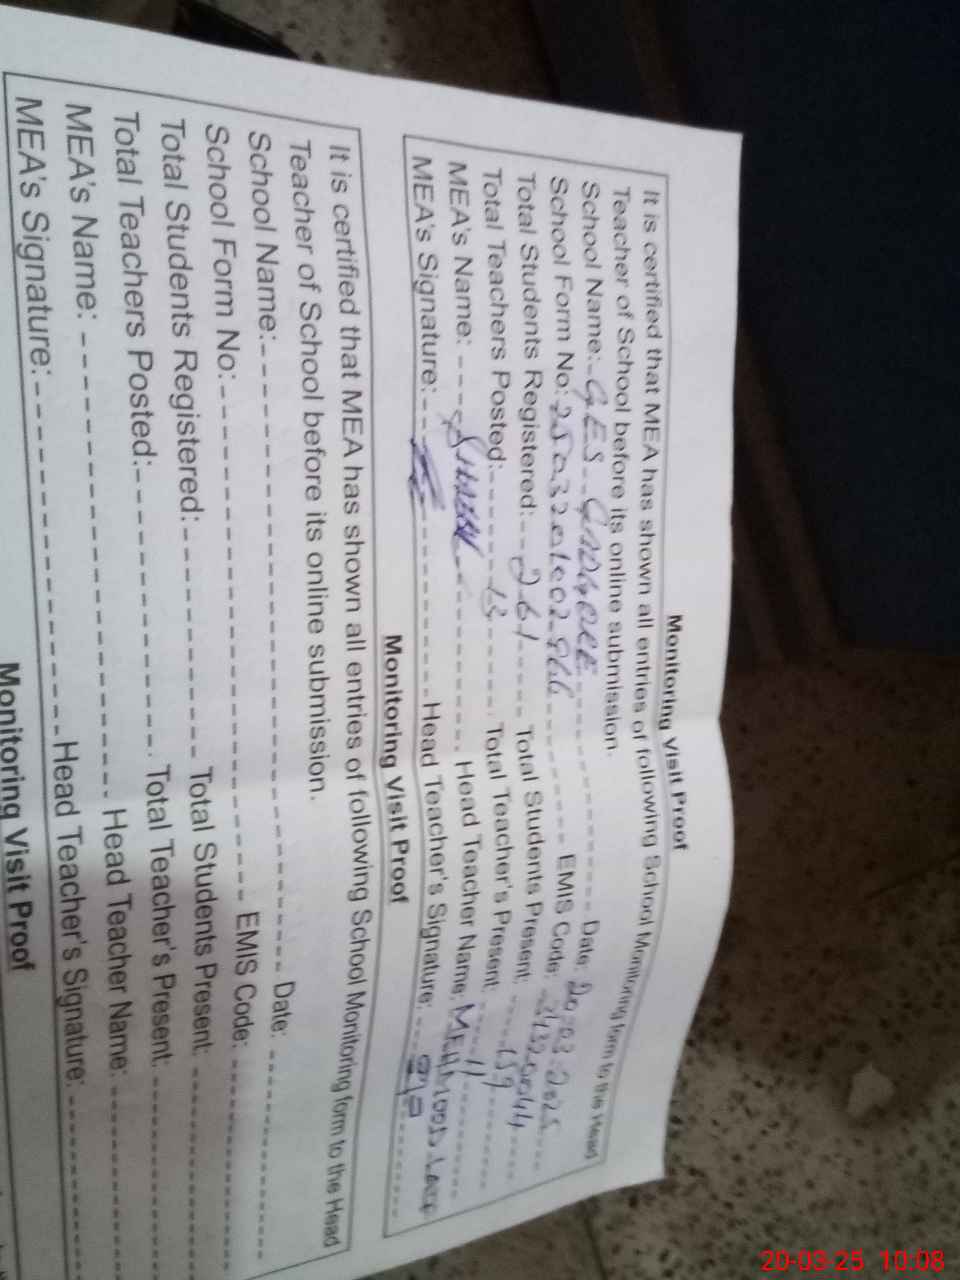 Monitoring Visit Proof
It is certified that MEA has shown all entries of following School Monitoring form to the Head
Teacher of School before its online submission.
School Name: GES Date: 20-03-2025
School Form No: EMIS Code:
Total Students Registered: 261 Total Students Present: 159
Total Teachers Posted: 13 Total Teacher's Present: 11
MEA's Name: Head Teacher Name: MEHMOOD
MEA's Signature: Head Teacher's Signature:
Monitoring Visit Proof
It is certified that MEA has shown all entries of following School Monitoring form to the Head
Teacher of School before its online submission.
School Name: Date:
School Form No: EMIS Code:
Total Students Registered: Total Students Present:
Total Teachers Posted: Total Teacher's Present:
MEA's Name: Head Teacher Name:
MEA's Signature: Head Teacher's Signature:
Monitoring Visit Proof
20-03-25 10:08